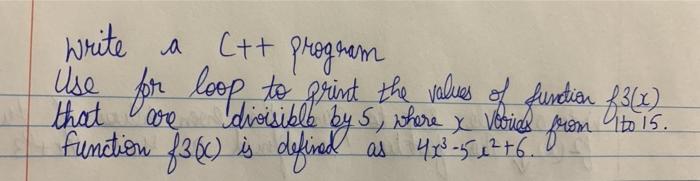 Write a C++ program
Use for loop to print the values of function f3(x)
that are divisible by 5, where x varies from 1 to 15.
function f3(x) is defined as 4x³-5x²+6.